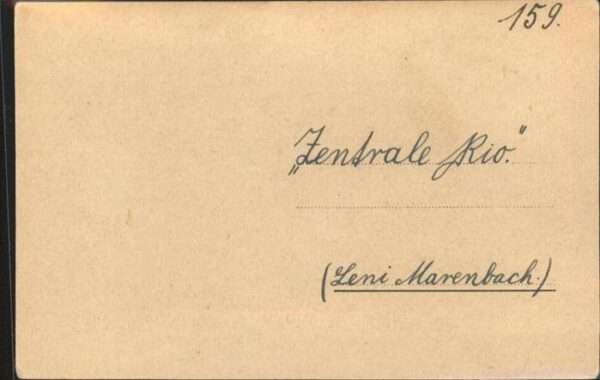 159.
„Zentrale Rio."
(Leni Marenbach.)